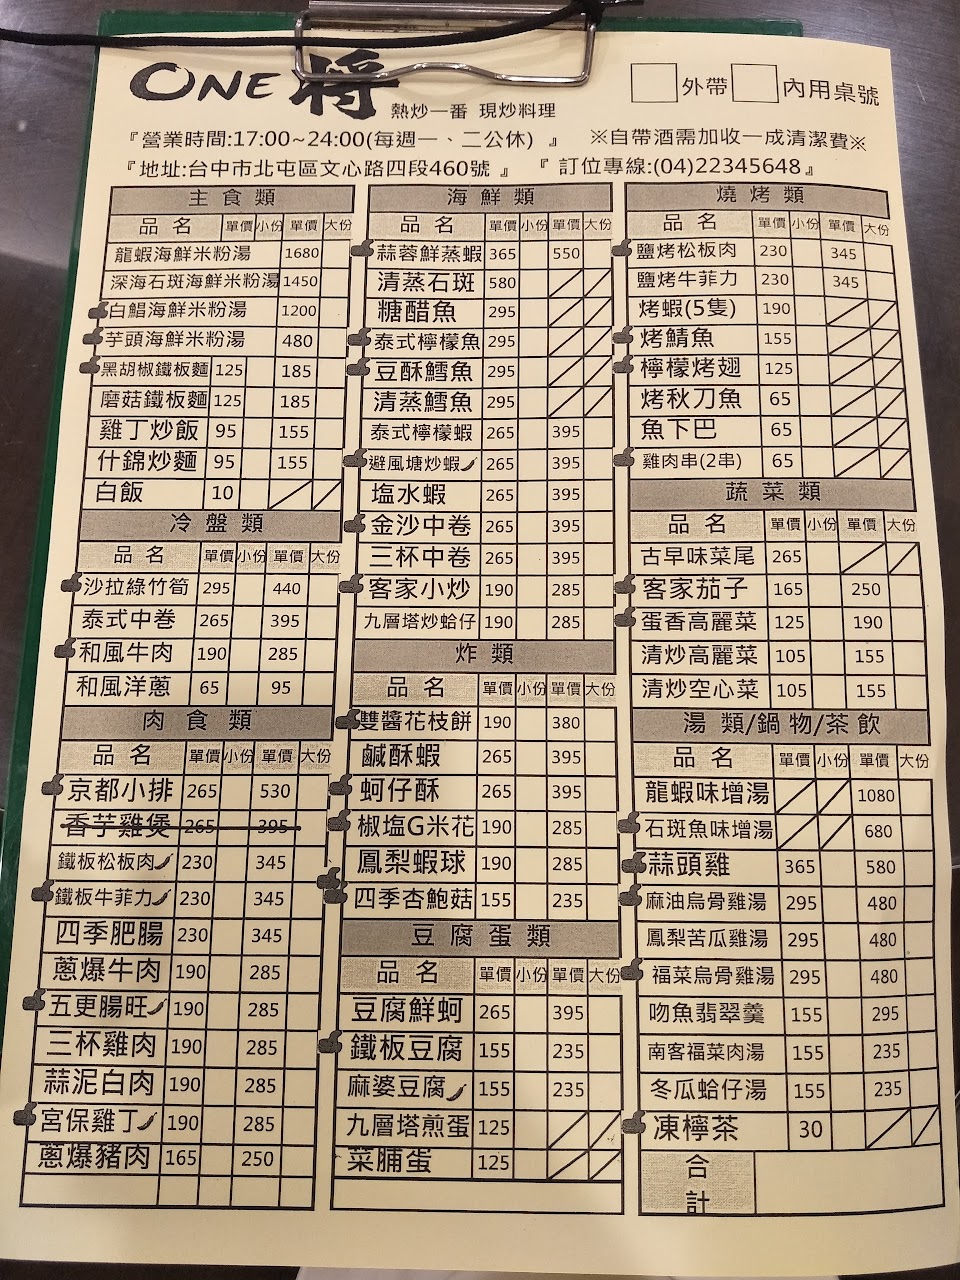 ONE 將 熱炒一番 現炒料理 外帶 內用桌號
『營業時間:17:00~24:00(每週一、二公休) 』 ※自帶酒需加收一成清潔費※
『地址:台中市北屯區文心路四段460號 』 『 訂位專線:(04)22345648』
主食類
品名 單價 小份 單價 大份
龍蝦海鮮米粉湯 1680
深海石斑海鮮米粉湯 1450
白鯧海鮮米粉湯 1200
芋頭海鮮米粉湯 480
黑胡椒鐵板麵 125 185
磨菇鐵板麵 125 185
雞丁炒飯 95 155
什錦炒麵 95 155
白飯 10
冷盤類
品名 單價 小份 單價 大份
沙拉綠竹筍 295 440
泰式中卷 265 395
和風牛肉 190 285
和風洋蔥 65 95
肉食類
品名 單價 小份 單價 大份
京都小排 265 530
香芋雞煲 265 395
鐵板松板肉 230 345
鐵板牛菲力 230 345
四季肥腸 230 345
蔥爆牛肉 190 285
五更腸旺 190 285
三杯雞肉 190 285
蒜泥白肉 190 285
宮保雞丁 190 285
蔥爆豬肉 165 250
海鮮類
品名 單價 小份 單價 大份
蒜蓉鮮蒸蝦 365 550
清蒸石斑 580
糖醋魚 295
泰式檸檬魚 295
豆酥鱈魚 295
清蒸鱈魚 295
泰式檸檬蝦 265 395
避風塘炒蝦 265 395
塩水蝦 265 395
金沙中卷 265 395
三杯中卷 265 395
客家小炒 190 285
九層塔炒蛤仔 190 285
炸類
品名 單價 小份 單價 大份
雙醬花枝餅 190 380
鹹酥蝦 265 395
蚵仔酥 265 395
椒塩G米花 190 285
鳳梨蝦球 190 285
四季杏鮑菇 155 235
豆腐蛋類
品名 單價 小份 單價 大份
豆腐鮮蚵 265 395
鐵板豆腐 155 235
麻婆豆腐 155 235
九層塔煎蛋 125
菜脯蛋 125
燒烤類
品名 單價 小份 單價 大份
鹽烤松板肉 230 345
鹽烤牛菲力 230 345
烤蝦(5隻) 190
烤鯖魚 155
檸檬烤翅 125
烤秋刀魚 65
魚下巴 65
雞肉串(2串) 65
蔬菜類
品名 單價 小份 單價 大份
古早味菜尾 265
客家茄子 165 250
蛋香高麗菜 125 190
清炒高麗菜 105 155
清炒空心菜 105 155
湯類/鍋物/茶飲
品名 單價 小份 單價 大份
龍蝦味增湯 1080
石斑魚味增湯 680
蒜頭雞 365 580
麻油烏骨雞湯 295 480
鳳梨苦瓜雞湯 295 480
福菜烏骨雞湯 295 480
吻魚翡翠羹 155 295
南客福菜肉湯 155 235
冬瓜蛤仔湯 155 235
凍檸茶 30
合
計